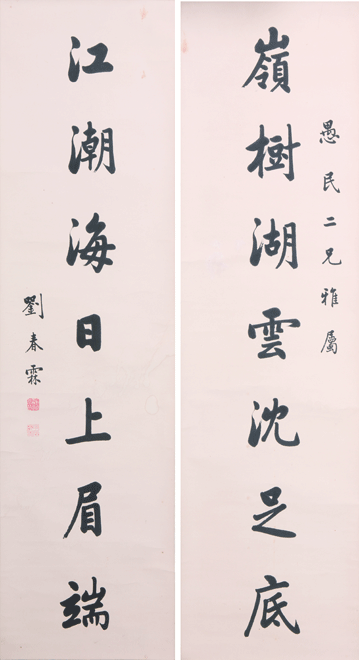 愚民二兄雅屬
嶺樹湖雲沈足底
江潮海日上眉端
劉春霖